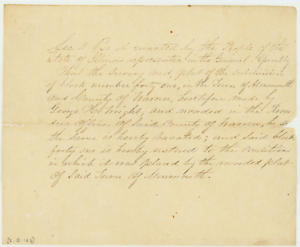 Sec 1 Be it enacted by the People of the
State of Illinois represented in the General Assembly
That the survey and plat of the subdivision
of block number forty one, in the Town of Monmouth
and County of Warren, heretofore made by
George H. Wright, and recorded in the
office of said County of Warren, be
the same is hereby vacated; and said block
forty one is hereby restored to the condition
in which it was placed by the recorded plat
of said Town of Monmouth.